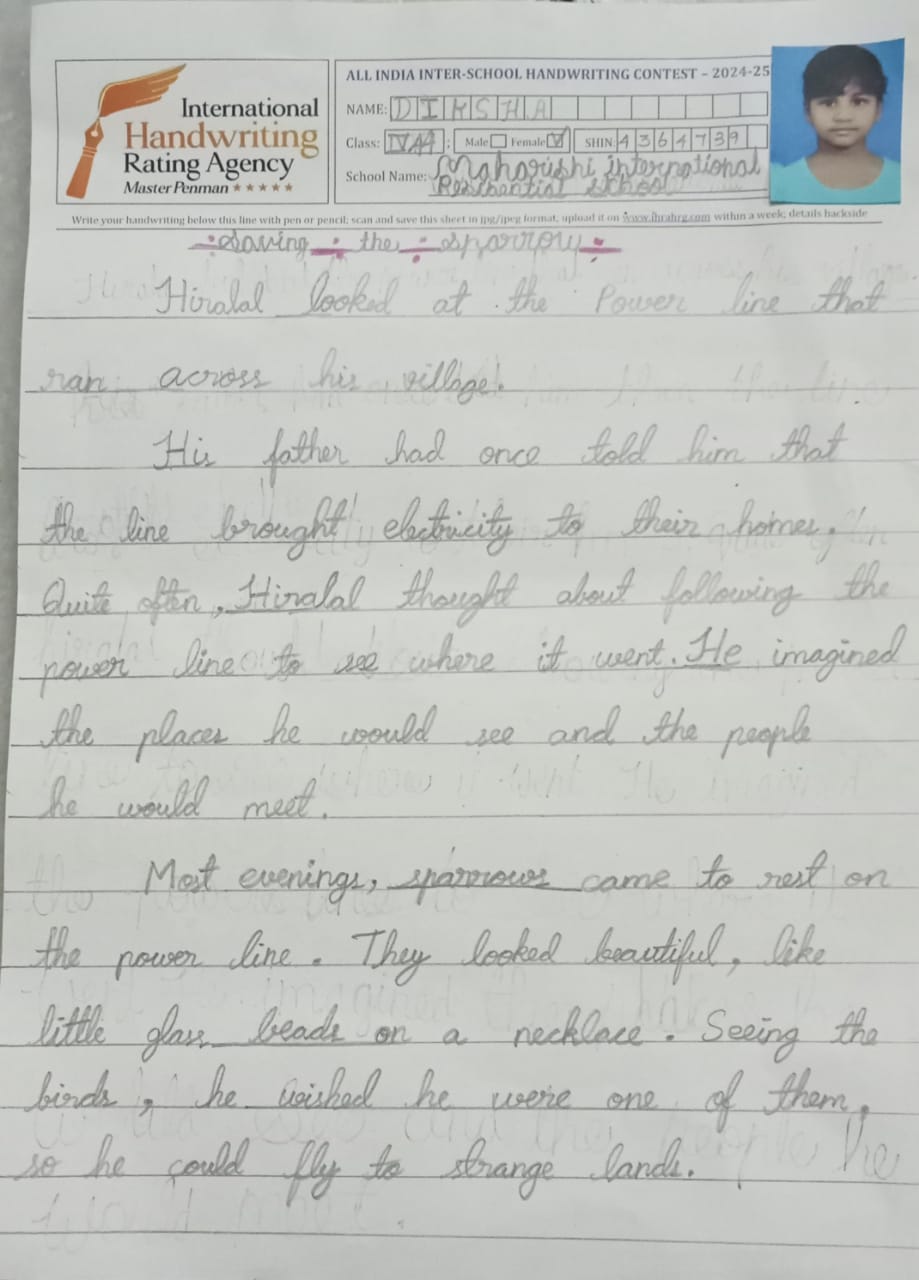 International
Handwriting
Rating Agency
Master Penman ★★★★★
ALL INDIA INTER-SCHOOL HANDWRITING CONTEST – 2024-25
NAME: DIKSHA
Class: IVA4 Male Female ✓ SHIN: 4364739
School Name: Maharishi international
Residential school
Write your handwriting below this line with pen or pencil; scan and save this sheet in jpg/jpeg format, upload it on www.ihrahrg.com within a week; details backside
Saving the sparrow
Hiralal looked at the Power line that
ran across his village.
His father had once told him that
the line brought electricity to their homes.
Quite often, Hiralal thought about following the
power line to see where it went. He imagined
the places he would see and the people
he would meet.
Most evenings, sparrows came to rest on
the power line. They looked beautiful, like
little glass beads on a necklace. Seeing the
birds, he wished he were one of them,
so he could fly to strange lands.